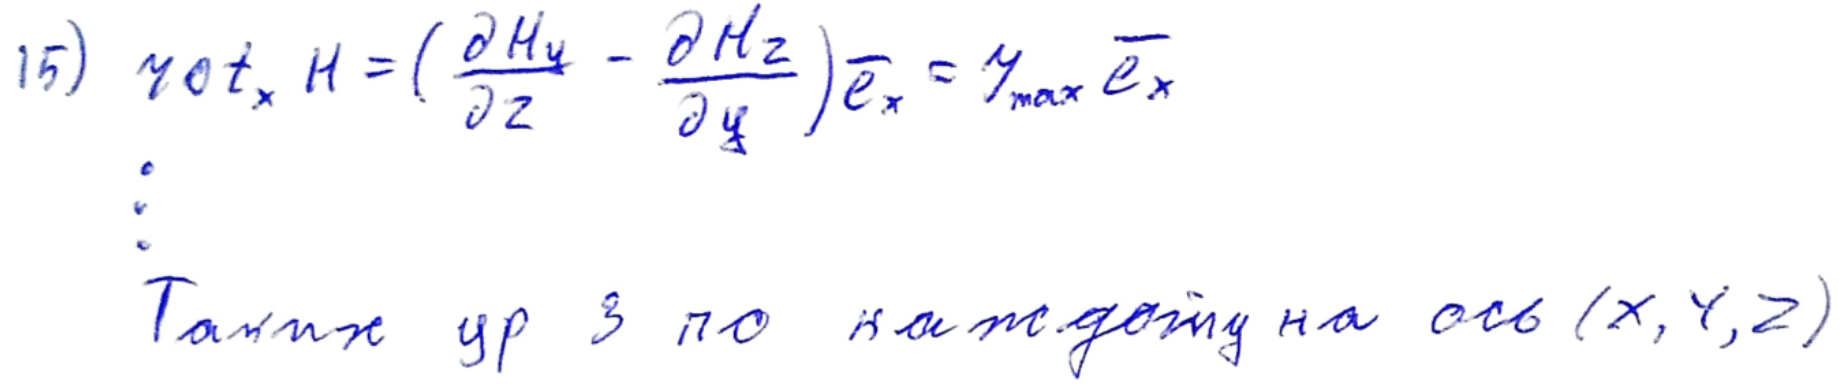 15) rot_x H = (∂Hy/∂z - ∂Hz/∂y) e̅_x = J_max e̅_x
⋮
Таких ур 3 по каждому на ось (x, y, z)